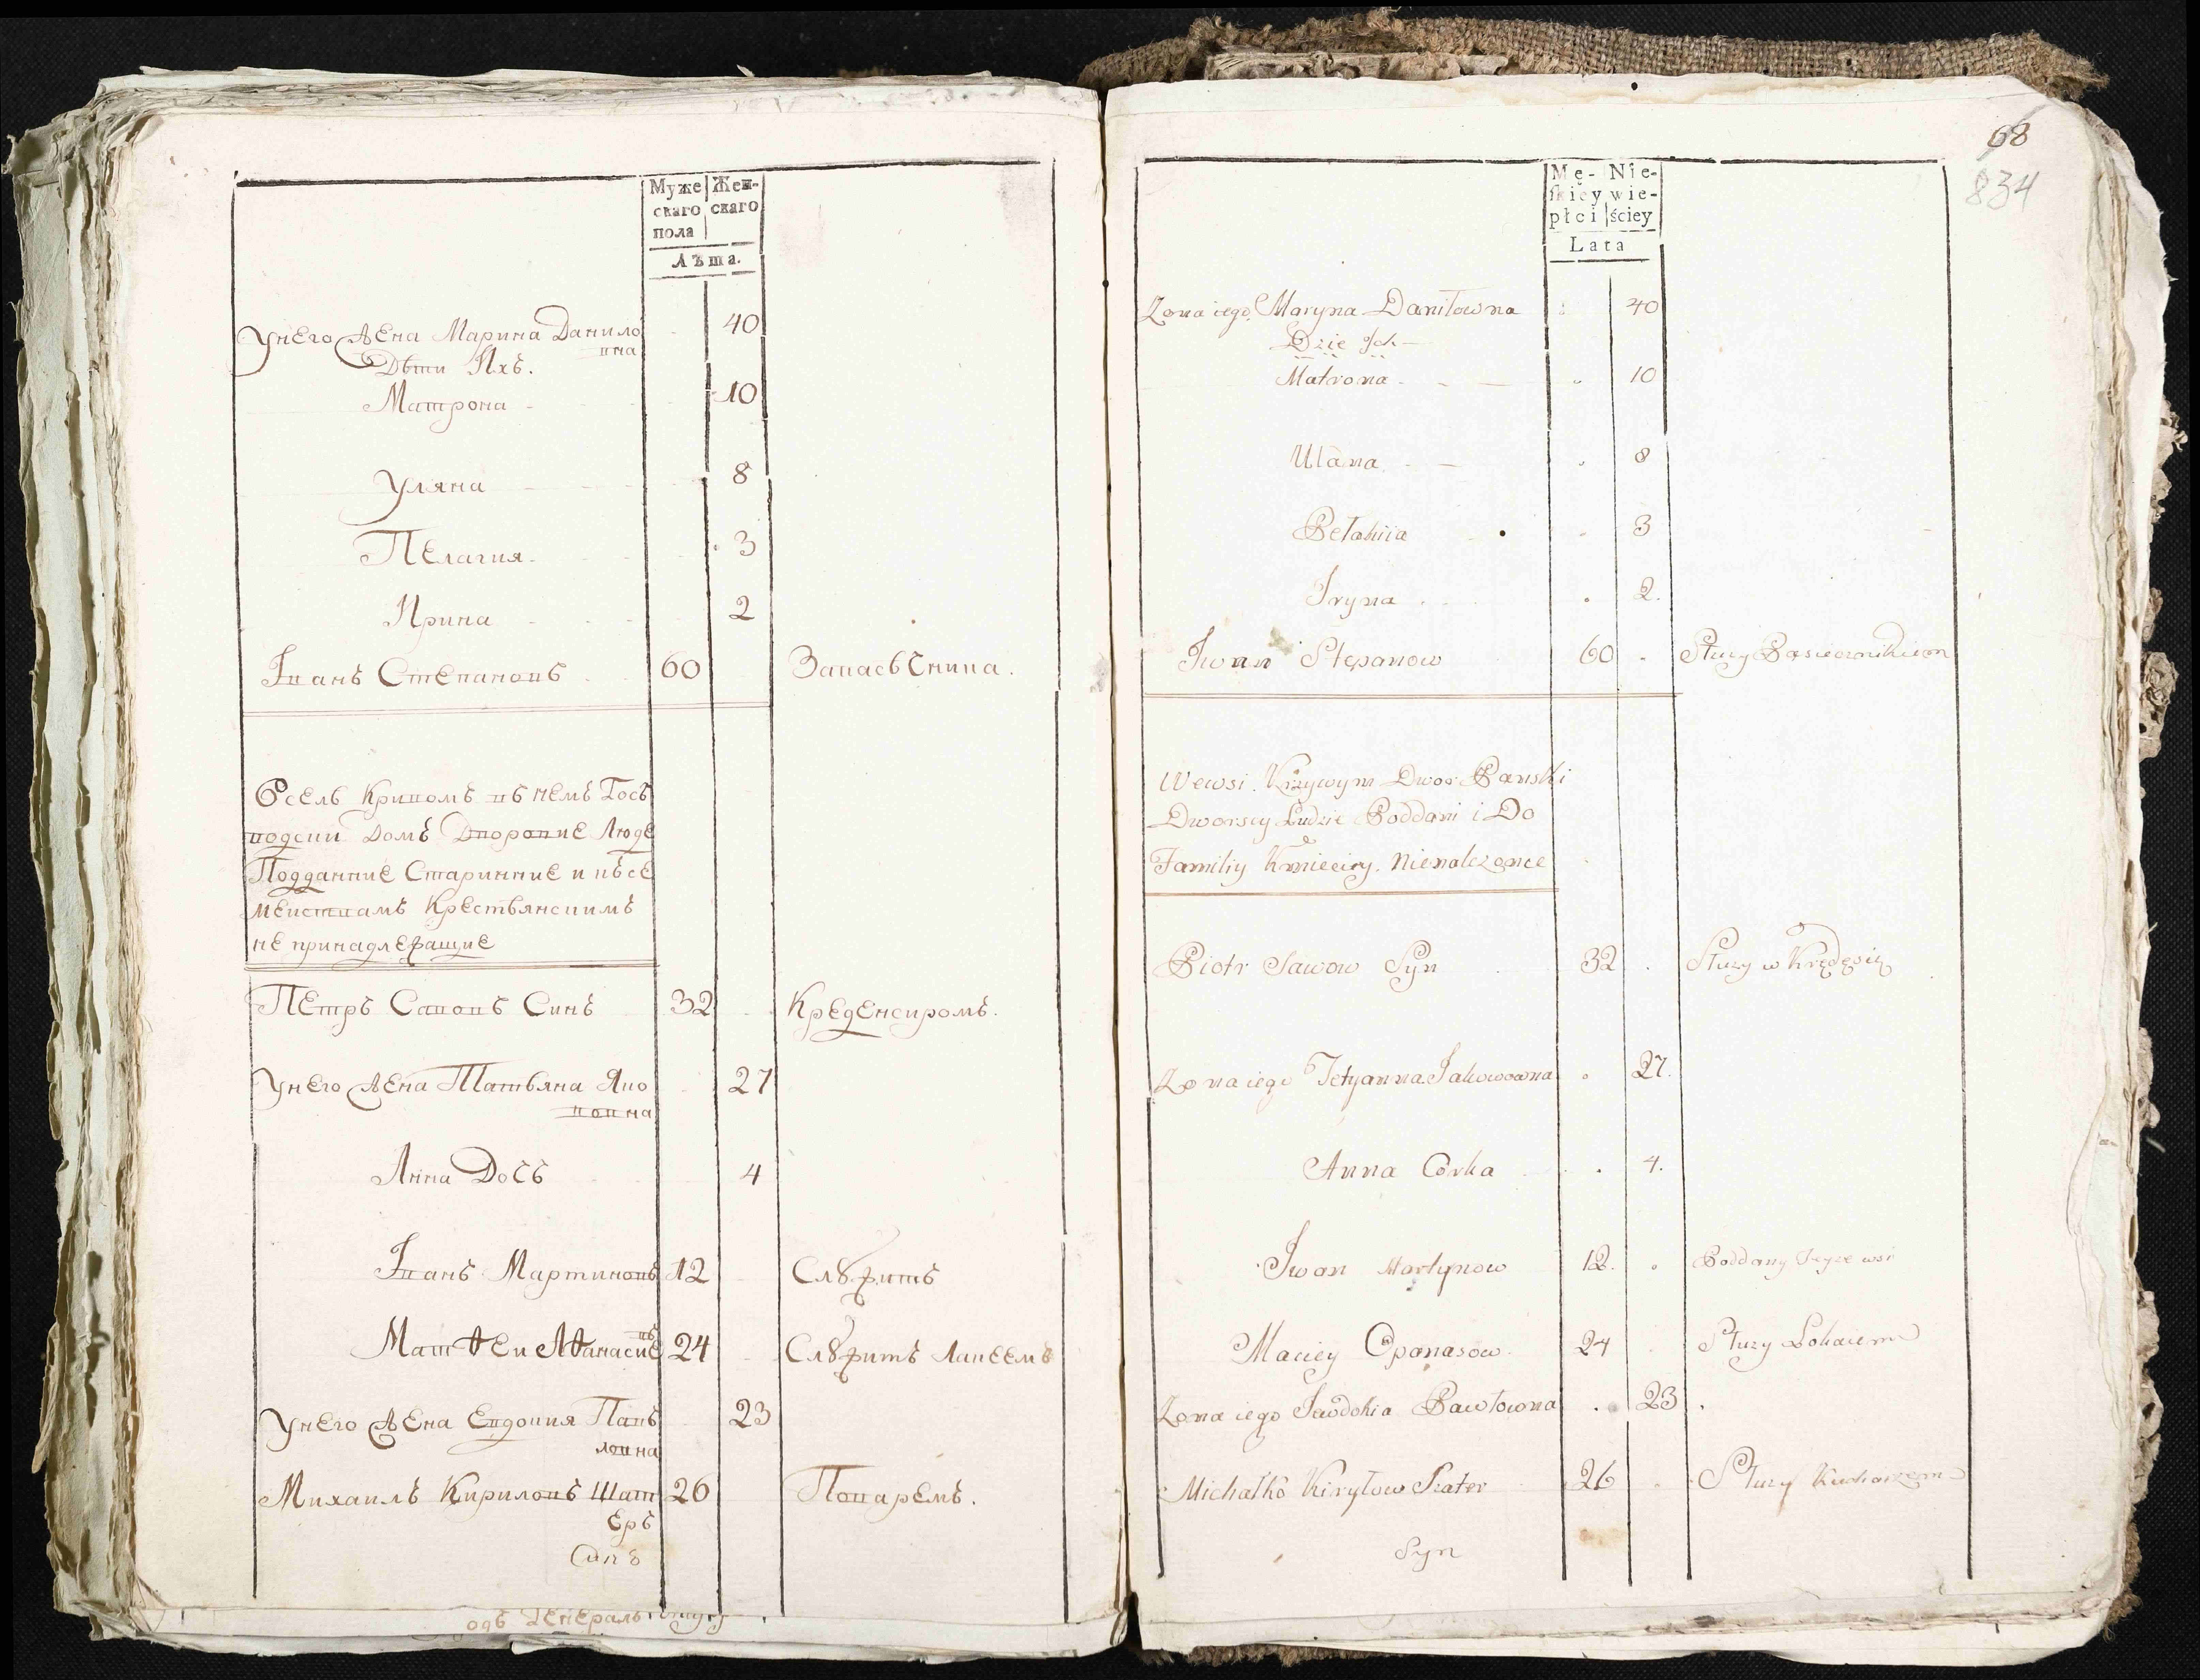 Муже Жен-
скаго скаго
пола
Лѣта.
Унего Жена Марина Данило 40
вна
Дѣти Ихъ.
Матрона 10
Уляна 8
Пелагия 3
Ирина 2
Іванъ Степановъ 60
Вселѣ Кривомъ въ немъ Гось
подскіи Домъ Дворовие Люде
Подданние Старинние и къ се
меиствамъ Крестьянскимъ
не принадлежащие
Петръ Савовъ Синъ 32 Креденсиромъ.
Унего Жена Татьяна Яко 27
вовна
Анна Дочь 4
Іванъ Мартиновъ 12 Служитъ
Матѳеи Аѳанасие 24 Служитъ Лакеемъ
въ
Унего Жена Евдокия Павъ 23
ловна
Михаилъ Кириловъ Шат 26 Поваремъ.
еръ
Синъ
68
834
Mę- Nie-
skiey wie-
płci ściey
Lata
Zona iego Maryna Daniłowna 40
Dzie Ich
Matrona 10
Ulana 8
Pełahiia 3
Iryna 2.
Iwan Stepanow 60 Służy Pasiecznikiem
Wewsi Krzywym Dwor Panski
Dworscy Ludzie Poddani i Do
Familiy Kmieciey. Nienalezące
Piotr Sawow Syn 32 Służy w Kredęsie
Zona iego Tetyanna Jakowowna 27.
Anna Corka 4.
Iwan Martynow 12. Poddany Teyze wsi
Maciey Opanasow 24 Służy Lokaiem
Zona iego Jewdokia Pawłowna 23
Michałko Kiryłow Szater 26 Służy Kucharzem
Syn